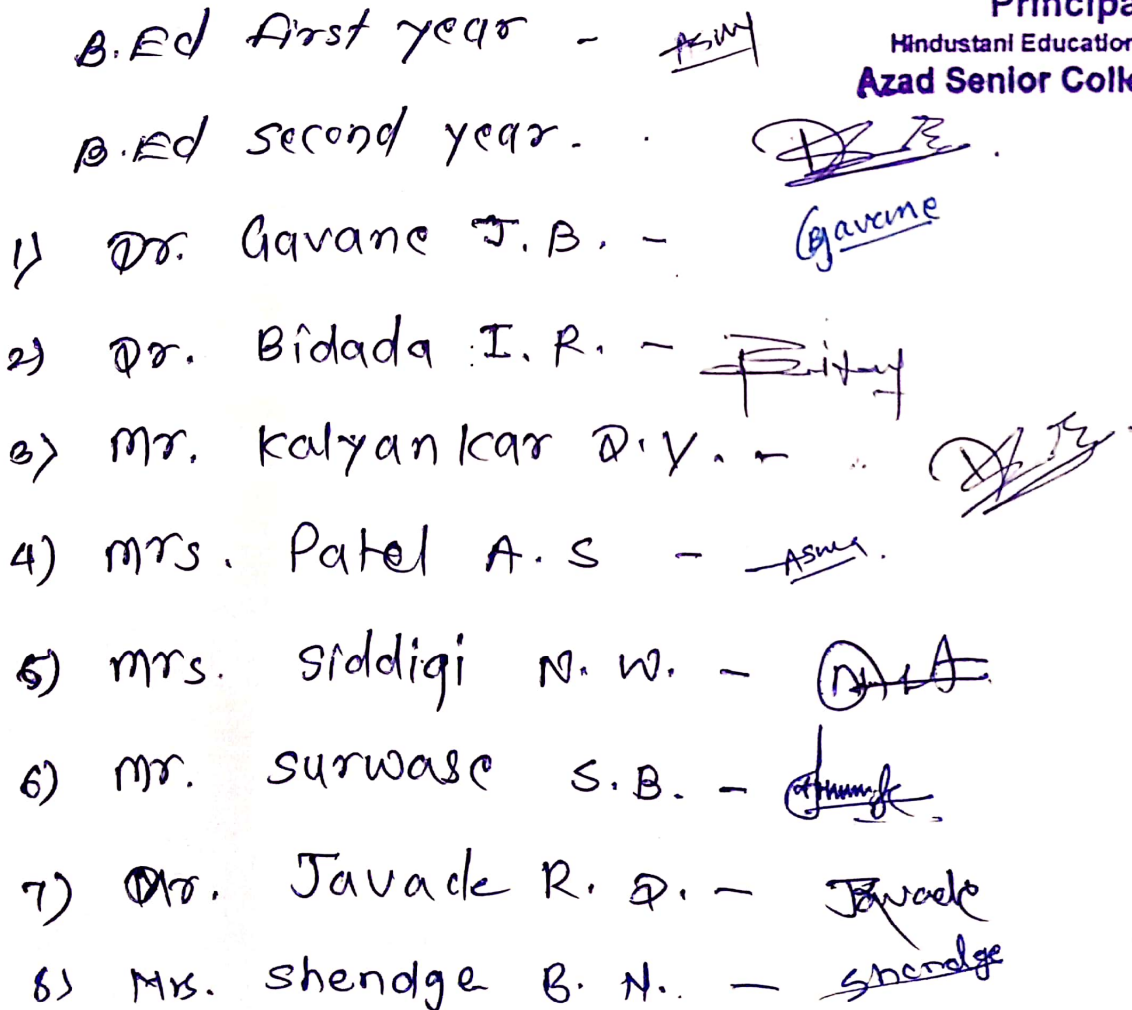 Principa
Hindustani Education
Azad Senior Colle
B.Ed first year -
B.Ed second year.
1) Dr. Gavane J.B. - Gavane
2) Dr. Bidada I.R. -
3) Mr. Kalyankar D.V. -
4) Mrs. Patel A.S - Asma.
5) Mrs. Siddiqi N.W. -
6) Mr. Surwase S.B. -
7) Mr. Javade R.D. - Javade
8) Mrs. Shendge B.N. - Shendge